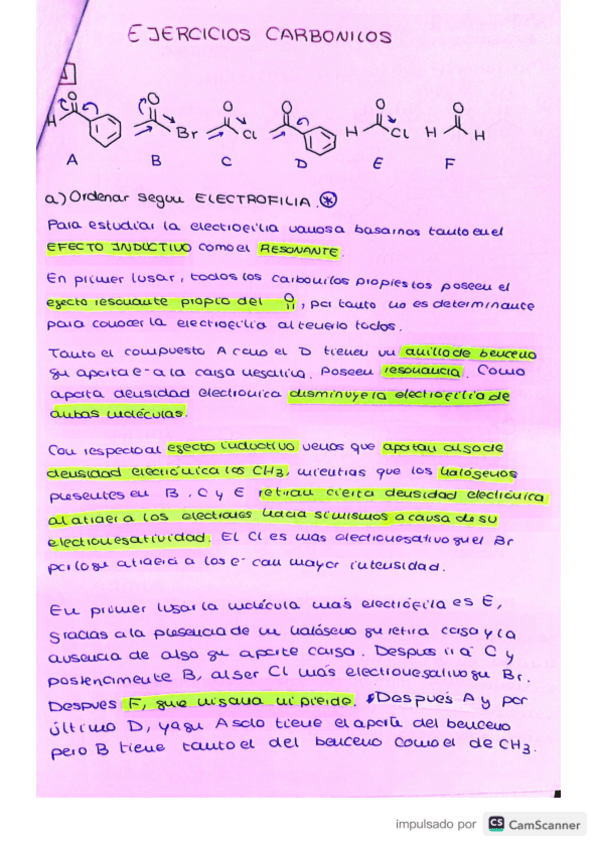 EJERCICIOS CARBONICOS
1
H O O Br O Cl O H O Cl H O H
A B C D E F
a.) Ordenar segun ELECTROFILIA.
Para estudiar la electrofilia vamosa basarnos tanto en el
EFECTO INDUCTIVO como el RESONANTE.
En primer lugar, todos los carbonilos propiestos poseen el
efecto resonante propio del O, por tanto no es determinante
para conocer la electrofilia al tenerlo todos.
Tanto el compuesto A como el D tienen un anillo de benceno
qu aporta e- a la carga negativa. Poseen resonancia. Como
aporta densidad electronica disminuye la electrofilia de
ambas moléculas.
Con respecto al efecto inductivo vemos que aportan algo de
densidad electrónica los CH3, mientras que los halógenos
presentes en B, C y E retiran cierta densidad electrónica
al atraer a los electrones hacia si mismos a causa de su
electronegatividad. El Cl es mas electronegativo que el Br
por lo que atraerá a los e- con mayor intensidad.
En primer lugar la molécula más electrófila es E,
gracias a la presencia de un halógeno qu retira carga y la
ausencia de algo qu aporte carga. Despues iria C y
posteriormente B, al ser Cl más electronegativo qu Br.
Despues F, que ni gana ni pierde. Después A y por
último D, ya qu A solo tiene el aporte del benceno
pero B tiene tanto el del benceno como el de CH3.
impulsado por CS CamScanner